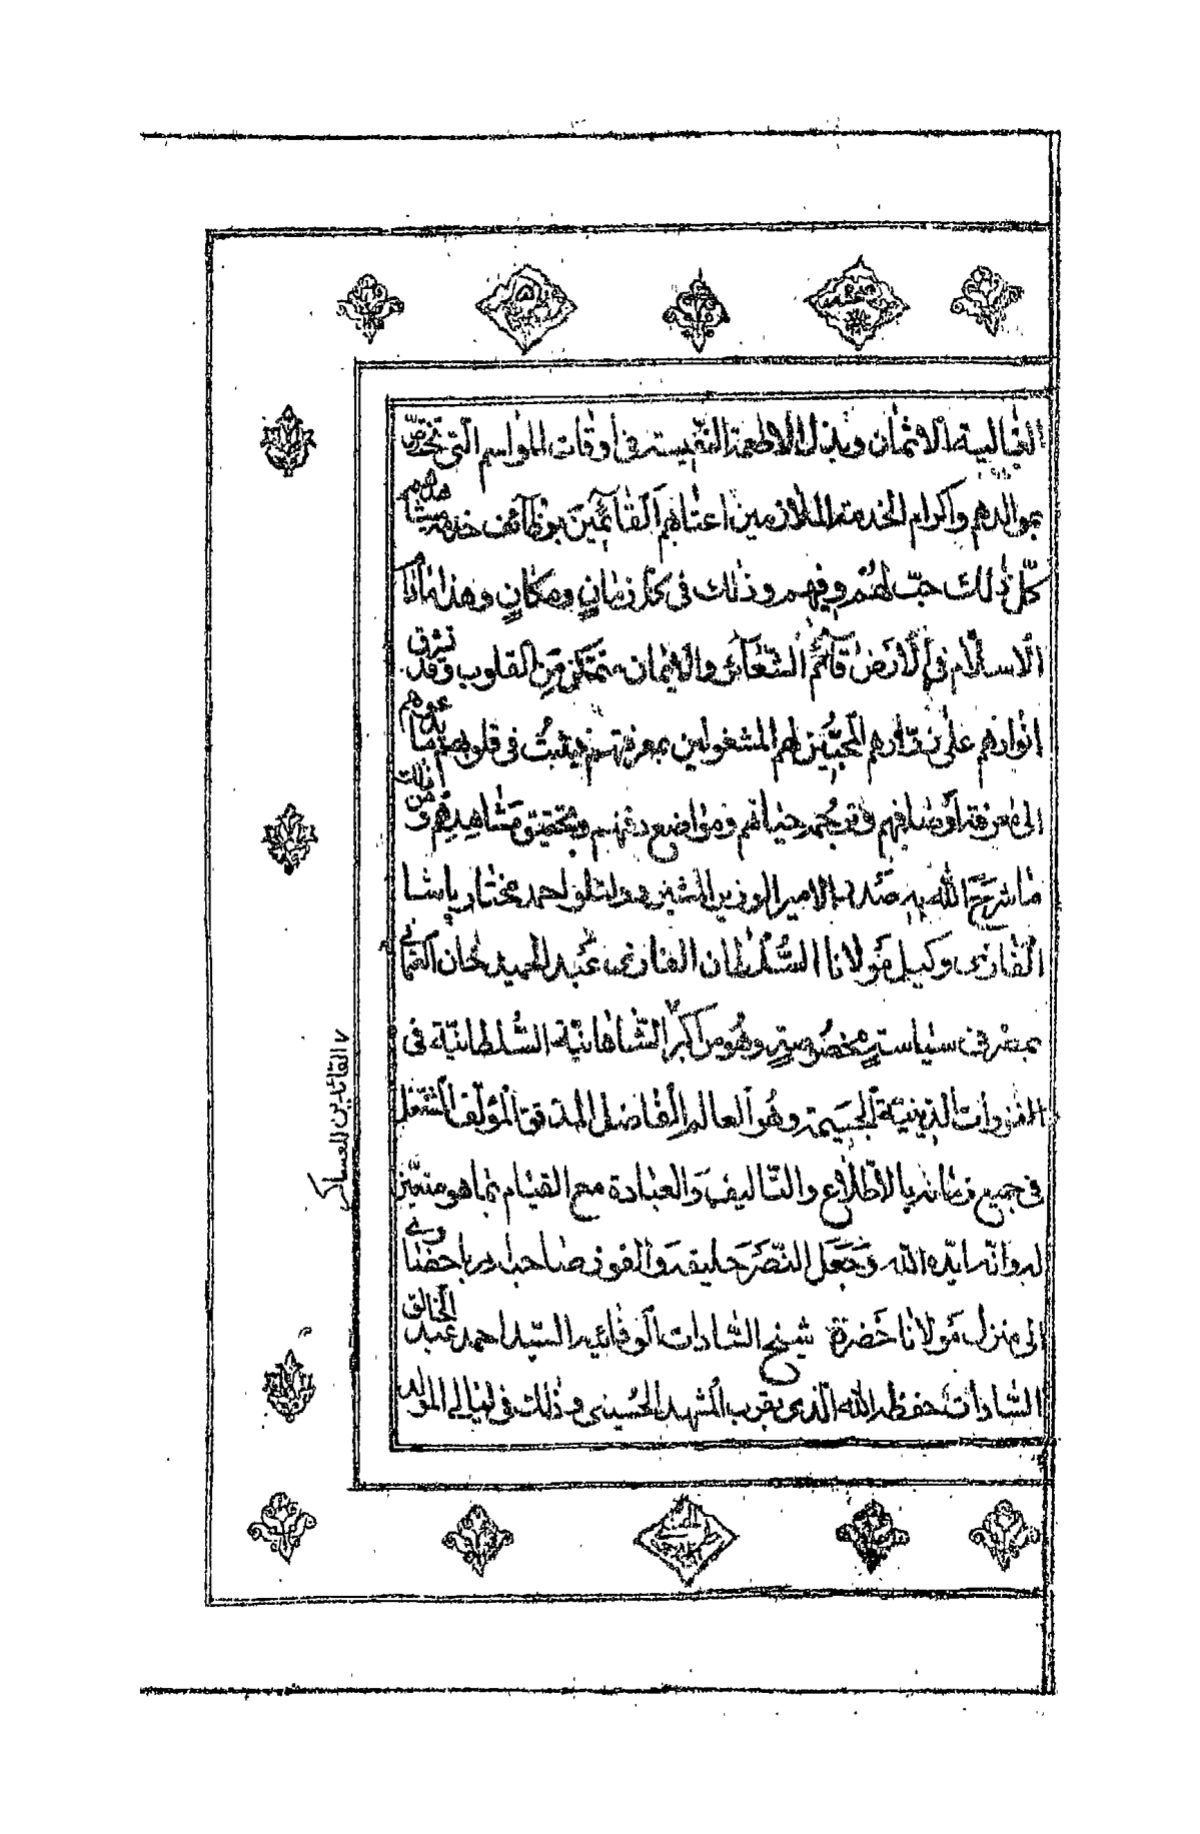 الغالية الاثمان وبذل الاطعمة النفيسة في أوقات المواسم التي تختصّ
بموالدهم واكرام الخدمة الملازمين اعتابهم القآئمين بوظآئف خدمة
كلّ ذلك حبّ لهم وفيهم وذلك في كل زمانٍ ومكانٍ وهذا مادام
الاسلام في الارض قآئمُ الشعآئر والايمان متمكن من القلوب وقد تشرق
انوارهم على زوّارهم المحبّين لهم المشغولين بمعرفتهم فيثبتُ في قلوبهم ما يدعوهم
الى معرفة أوصافهم وترجمة حياتهم ومواضع دفنهم وتحقيق مشاهدهم ومن ذلك
ما شرح الله به صدر الامير الوزير المشير دولتلو احمد مختار باشا
الغازي وكيل مولانا السُّلطان الغازي عبد الحميد خان العثماني
بمصر في سياسةٍ مخصوصةٍ وهُو من أكبر الشاهانيّة السُّلطانيّة في
الغزوات الدّينيّة الجسيمة وهُو العالم الفاضل المدقق المؤلّف المشتغل
في جميع زمانه بالاطّلاع والتّاليف والعبادة مع القيام بما هو متعيّن
له وانّه ايّده الله وجعل النصر حليفه والفوز صاحبا دربا حضنا
الى منزل مولانا حَضرة شيخ السّادات الوفائيه السيّد احمد عبد الخالق
السّادات حفظه الله الّذي بقرب المشهد الحُسيني وذلك في ليالي المولد
القائدين للعساكر